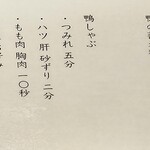 鴨しゃぶ
・つみれ 五分
・ハツ 肝 砂ずり 二分
・もも肉 胸肉 一〇秒